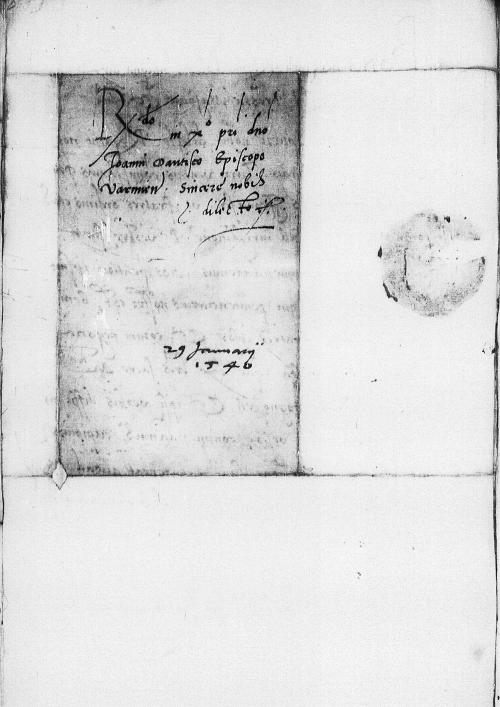 R do in xº pri dno
Joanni Dantisco Episcopo
Varmien̄ sincere nobis
dilecto
29 Januarij
1540